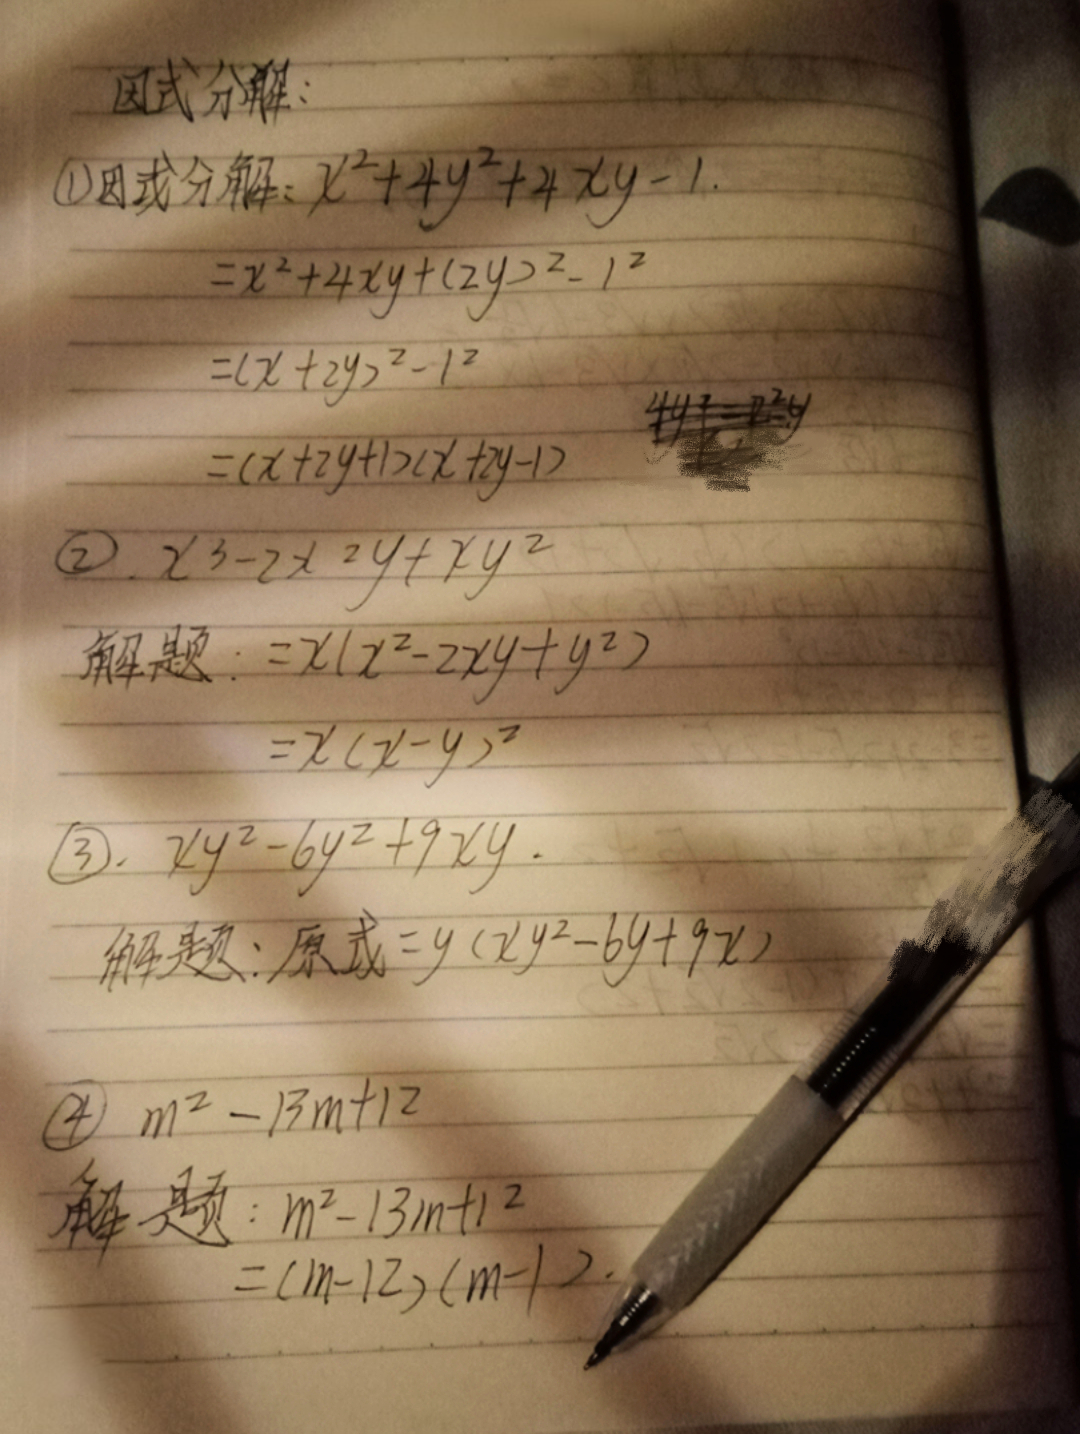 因式分解:
①因式分解: x²+4y²+4xy-1.
=x²+4xy+(2y)²-1²
=(x+2y)²-1²
=(x+2y+1)(x+2y-1)
②. x3-2x²y+xy²
解题: =x(x²-2xy+y²)
=x(x-y)²
③. xy²-6y²+9xy.
解题: 原式=y(xy²-6y+9x)
④ m²-13m+12
解题: m²-13m+12
=(m-12)(m-1).